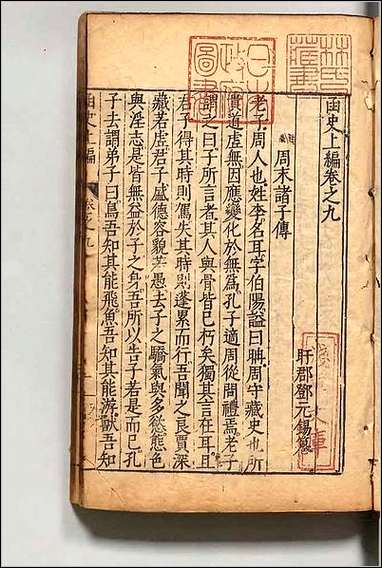 函史上編卷之九
盱郡鄧元錫纂
周末諸子傳
老子周人也姓李名耳字伯陽謚曰聃周守藏史也所
貴道虛無因應變化於無為孔子適周從問禮焉老子
謂之曰子所言者其人與骨皆已朽矣獨其言在耳且
君子得其時則駕失其時則蓬累而行吾聞之良賈深
藏若虛君子盛德容貌若愚去子之驕氣與多欲態色
與淫志是皆無益於子之身吾所以告子若是而已孔
子去謂弟子曰鳥吾知其能飛魚吾知其能游獸吾知
函史上編
卷之九
林氏藏書
圖書